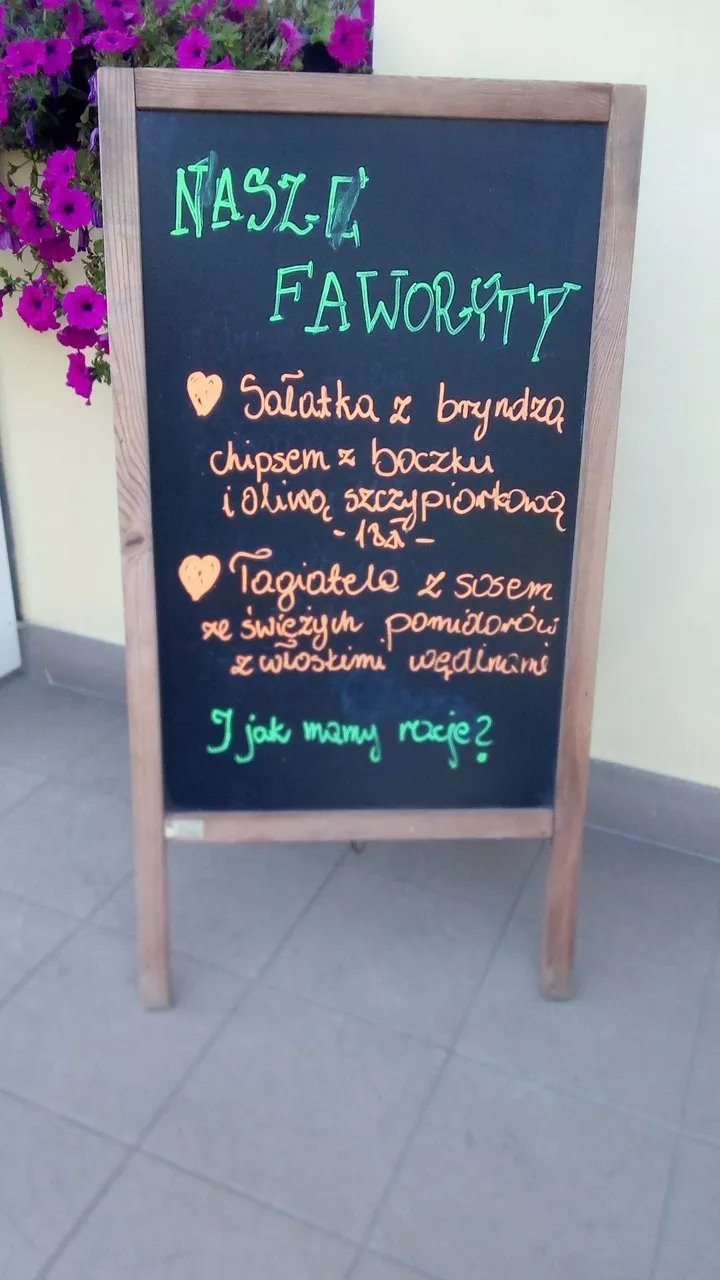 NASZE
FAWORYTY
Sałatka z bryndzą
chipsem z boczku
i oliwą szczypiorkową
- 18zł -
Tagiatele z sosem
ze świeżych pomidorów
z włoskimi wędlinami
I jak mamy racje?